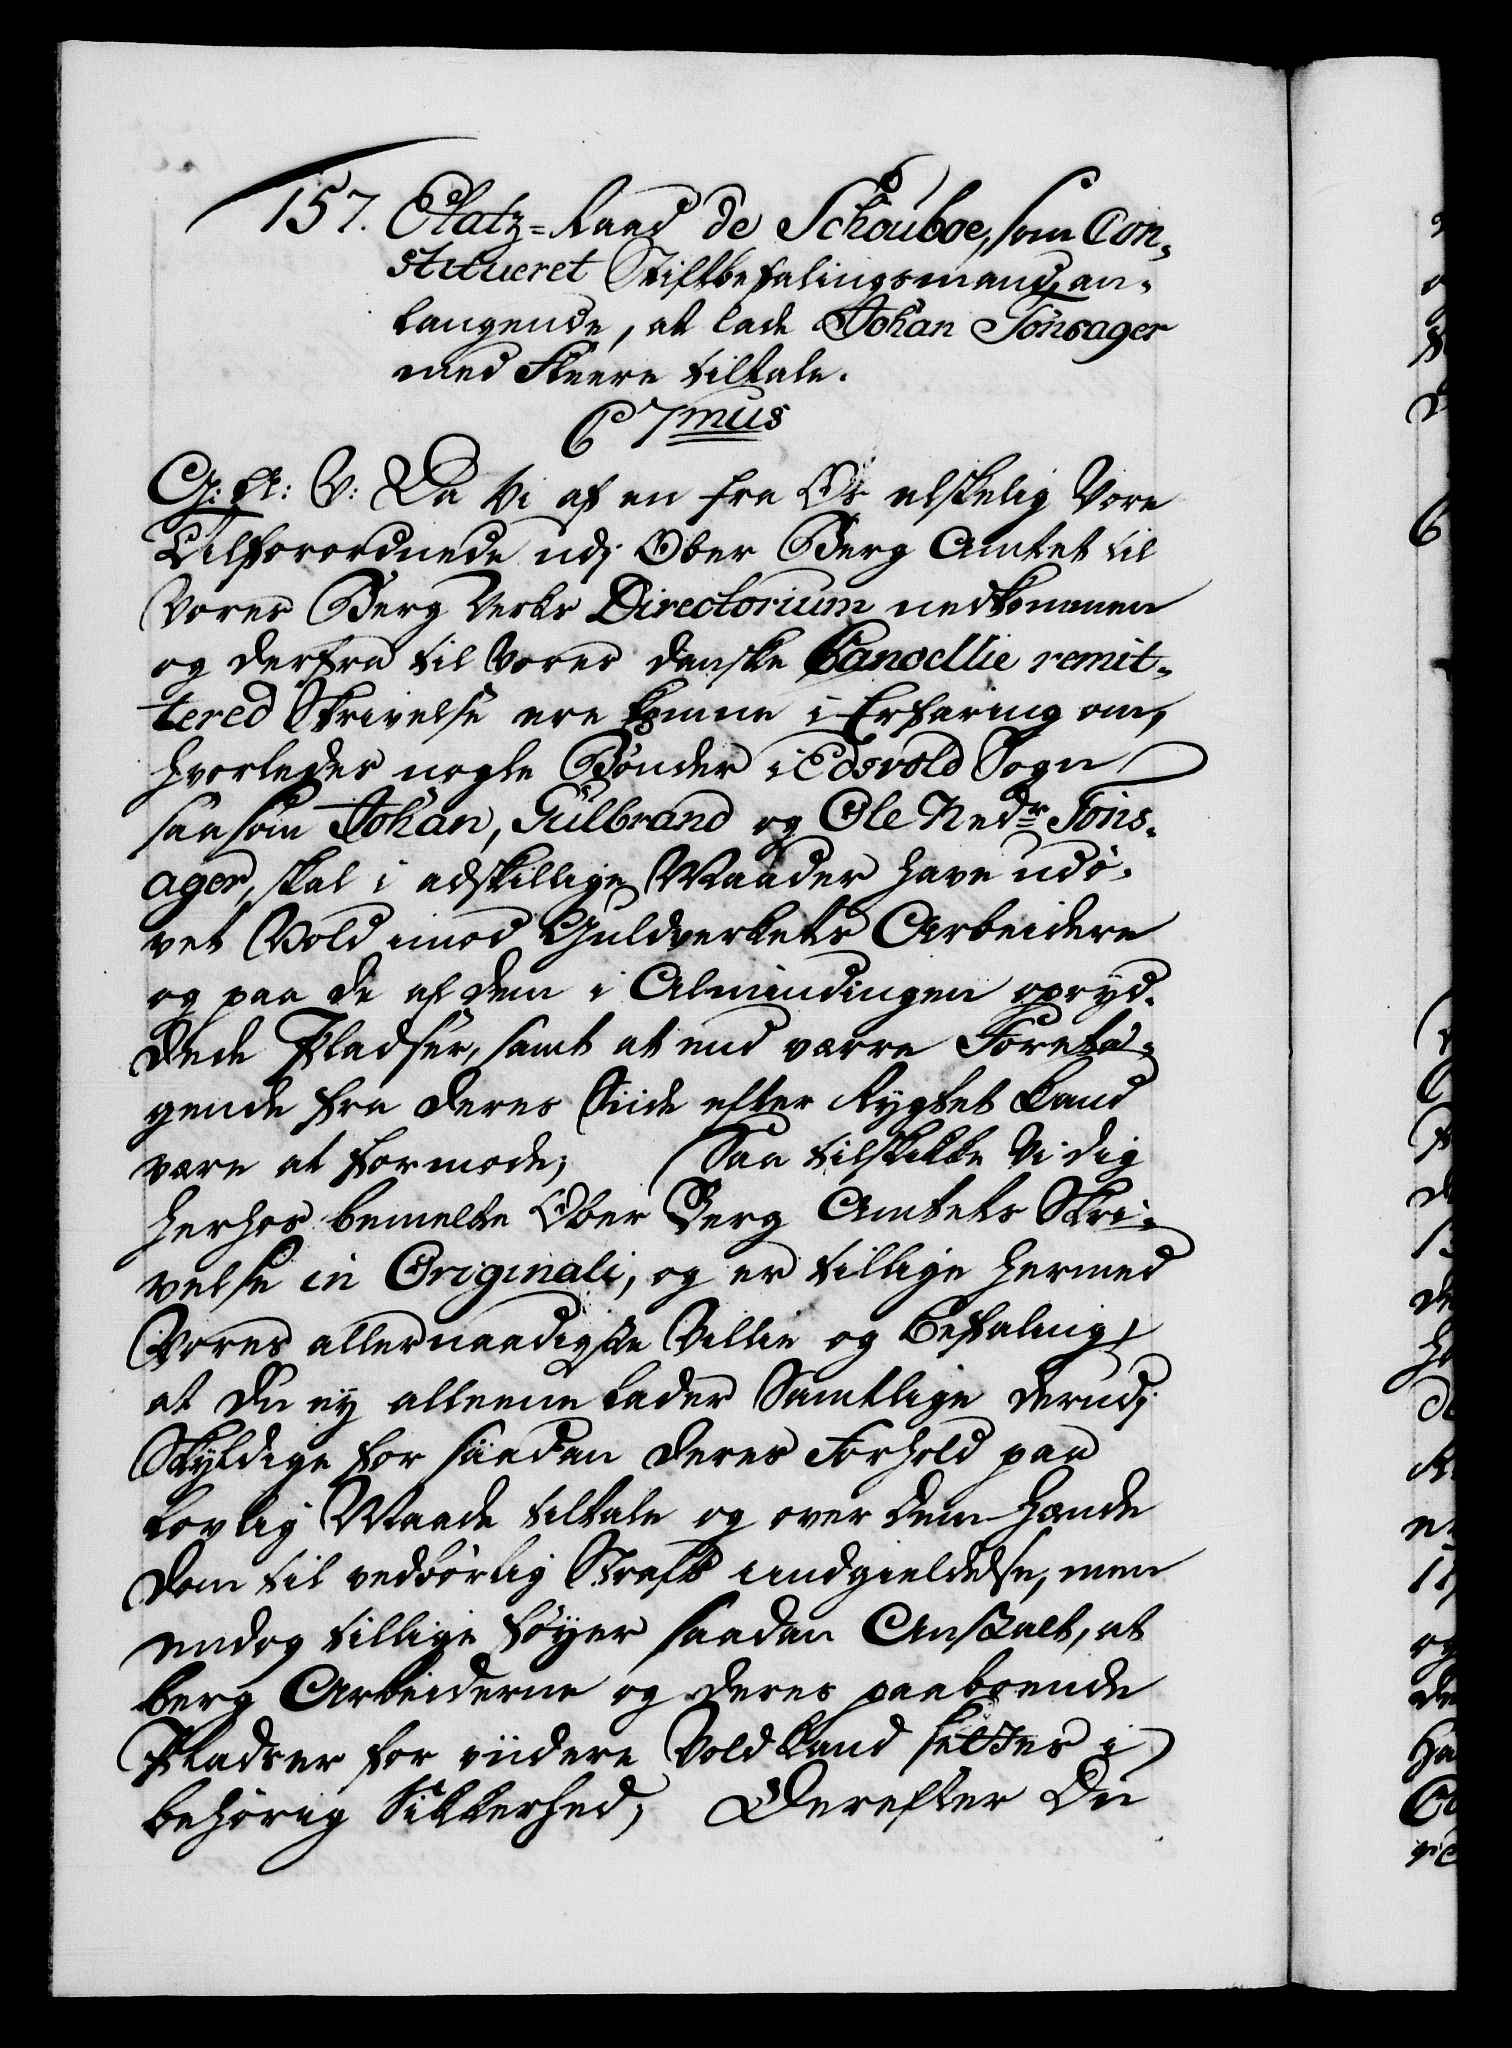 157. Etatz-Raad de Schouboe, som Con-
stitueret Stiftbefalingsmand, an-
langende, at lade Johan Tønsager
med Fleere tiltale.
C 7mus
G: Fr: V: Da Vi af en fra Os elskelig Vore
Tilforordnede udj Ober Berg Amtet til
Vores Berg Verks Directorium nedkommen
og derfra til Vores danske Cancellie remit-
tered Skrivelse ere komne i Erfaring om,
hvorledes nogle Bønder i Edsvold Sogn
saasom Johan, Gulbrand og Ole Nedr Tøns-
ager, skal i adskillige Maader have udø-
vet Vold imod Guldverkets Arbeidere
og paa de af dem i Almindingen opryd-
dede Pladser, samt at end værre Foreta-
gende fra deres Siide efter Rygtet kand
være at formode; Saa tilskikke Vi dig
herhos bemelte Ober Berg Amtets Skri-
velse in Originali, og er tillige hermed
Vores allernaadigste Villie og Befaling,
at du ej alleene lader Samtlige derudj
Skyldige for saadan deres Forhold paa
lovlig Maade tiltale og over dem hænde
Dom til vedbørlig Strafs undgieldelse, men
endog tillige føyer saadan Anstalt, at
berg Arbeiderne og deres paaboende
Pladser for viidere Vold kand settes i
behørig Sikkerhed; Derefter Du